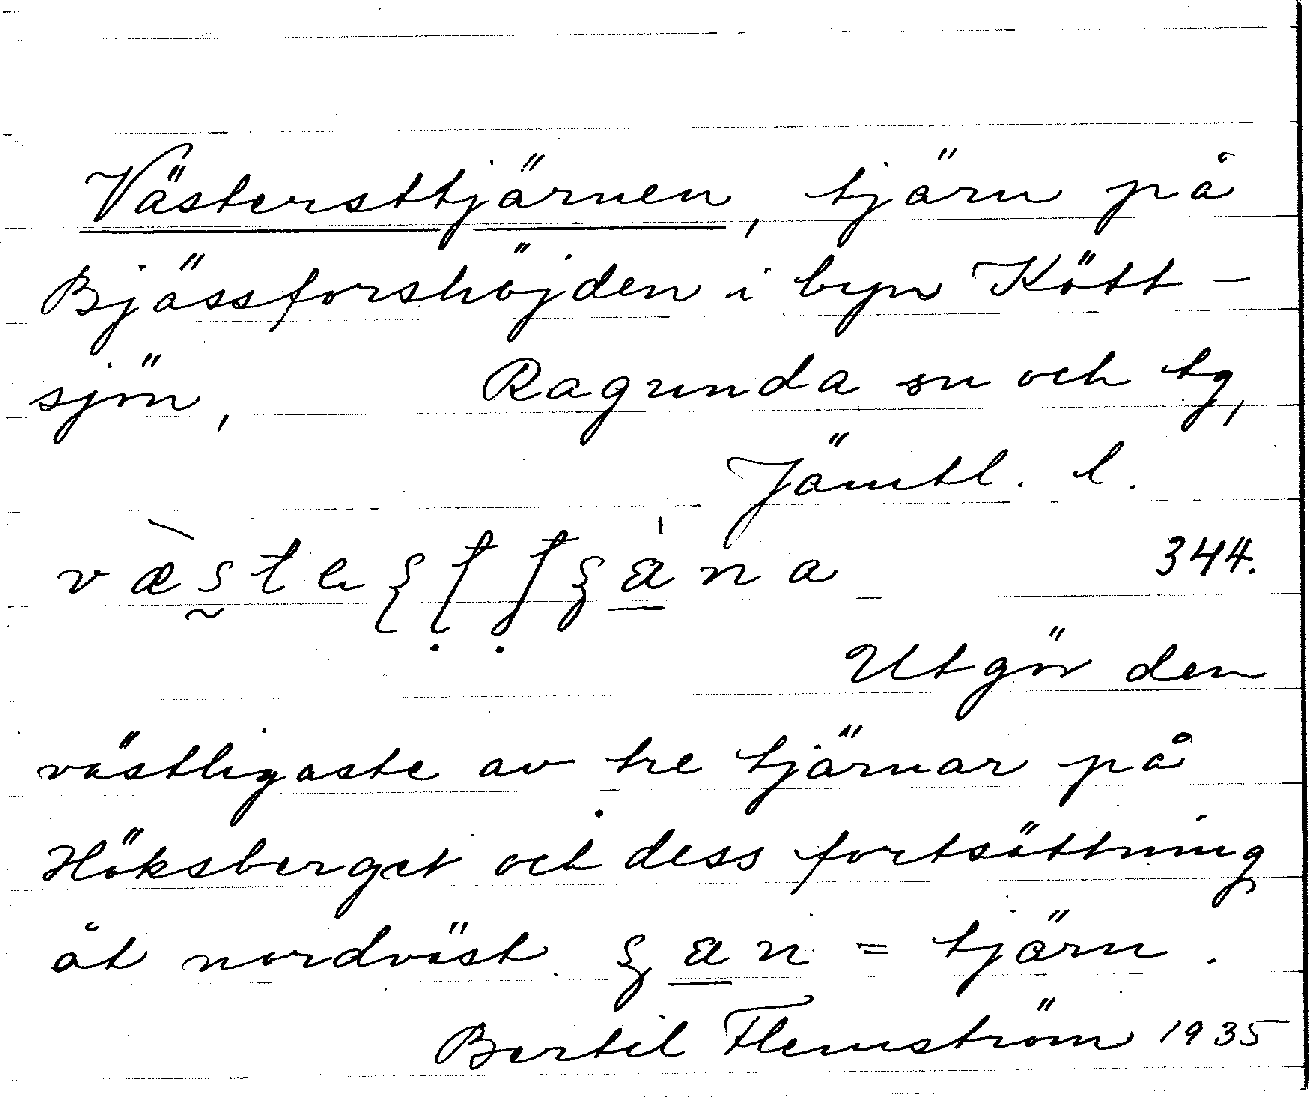 Västersttjärnen, tjärn på
Bjässforshöjden i byn Kött-
sjön, Ragunda sn och tg,
Jämtl. l.
344.
Utgör den
västligaste av tre tjärnar på
Höksberget och dess fortsättning
åt nordväst. = tjärn.
Bertil Flemström 1935